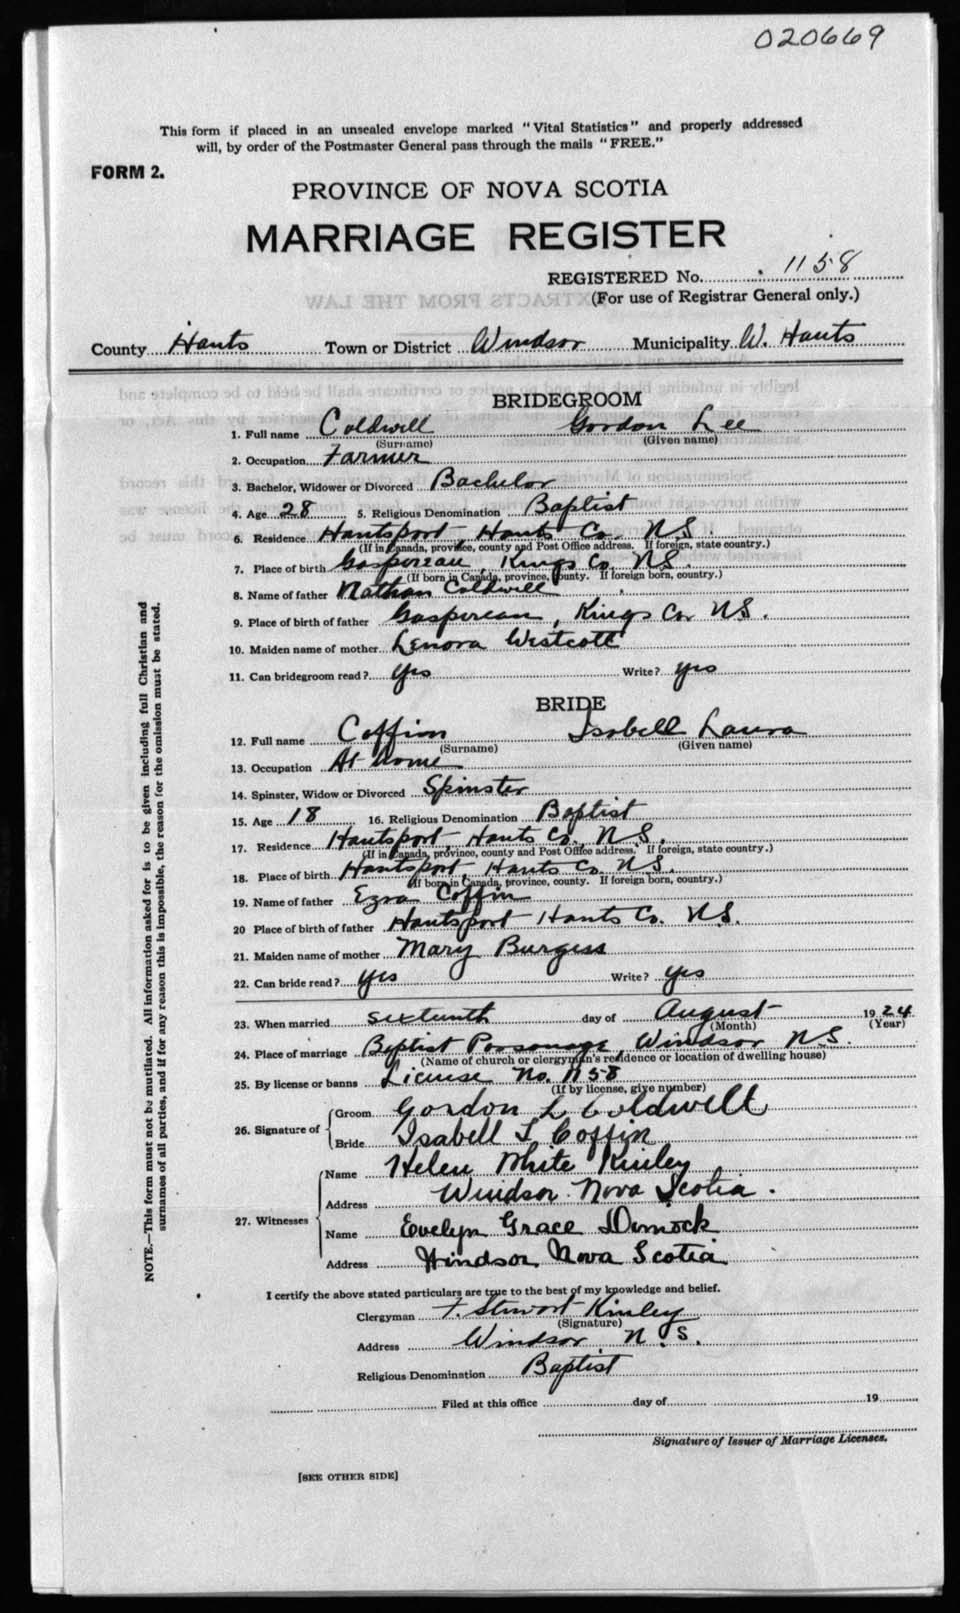 020669
This form if placed in an unsealed envelope marked "Vital Statistics" and properly addressed
will, by order of the Postmaster General pass through the mails "FREE."
FORM 2.
PROVINCE OF NOVA SCOTIA
MARRIAGE REGISTER
REGISTERED No. 1158
(For use of Registrar General only.)
County Hants Town or District Windsor Municipality W. Hants
BRIDEGROOM
1. Full name Coldwell Gordon Lee
(Surname) (Given name)
2. Occupation Farmer
3. Bachelor, Widower or Divorced Bachelor
4. Age 28 5. Religious Denomination Baptist
6. Residence Hantsport, Hants Co. N.S
(If in Canada, province, county and Post Office address. If foreign, state country.)
7. Place of birth Gaspereau, Kings Co. N.S.
(If born in Canada, province, county. If foreign born, country.)
8. Name of father Nathan Coldwell
9. Place of birth of father Gaspereau, Kings Co. N.S.
10. Maiden name of mother Lenora Westcott
11. Can bridegroom read? Yes Write? yes
BRIDE
12. Full name Coffin Isobell Laura
(Surname) (Given name)
13. Occupation At Home
14. Spinster, Widow or Divorced Spinster
15. Age 18 16. Religious Denomination Baptist
17. Residence Hantsport, Hants Co., N.S.
(If in Canada, province, county and Post Office address. If foreign, state country.)
18. Place of birth Hantsport, Hants Co. N.S.
(If born in Canada, province, county. If foreign born, country.)
19. Name of father Ezra Coffin
20 Place of birth of father Hantsport Hants Co. N.S.
21. Maiden name of mother Mary Burgess
22. Can bride read? yes Write? yes
23. When married sixteenth day of August 1924
(Month) (Year)
24. Place of marriage Baptist Parsonage, Windsor N.S.
(Name of church or clergyman's residence or location of dwelling house)
25. By license or banns License No. 1158
(If by license, give number)
26. Signature of Groom Gordon L Coldwell
Bride Isabell L Coffin
27. Witnesses Name Helen White Kinley
Address Windsor Nova Scotia.
Name Evelyn Grace Dimock
Address Windsor, Nova Scotia
I certify the above stated particulars are true to the best of my knowledge and belief.
Clergyman F. Stewart Kinley
(Signature)
Address Windsor N.S.
Religious Denomination Baptist
Filed at this office day of 19
Signature of Issuer of Marriage Licenses.
[SEE OTHER SIDE]
NOTE.—This form must not be mutilated. All information asked for is to be given including full Christian and
surnames of all parties, and if for any reason this is impossible, the reason for the omission must be stated.